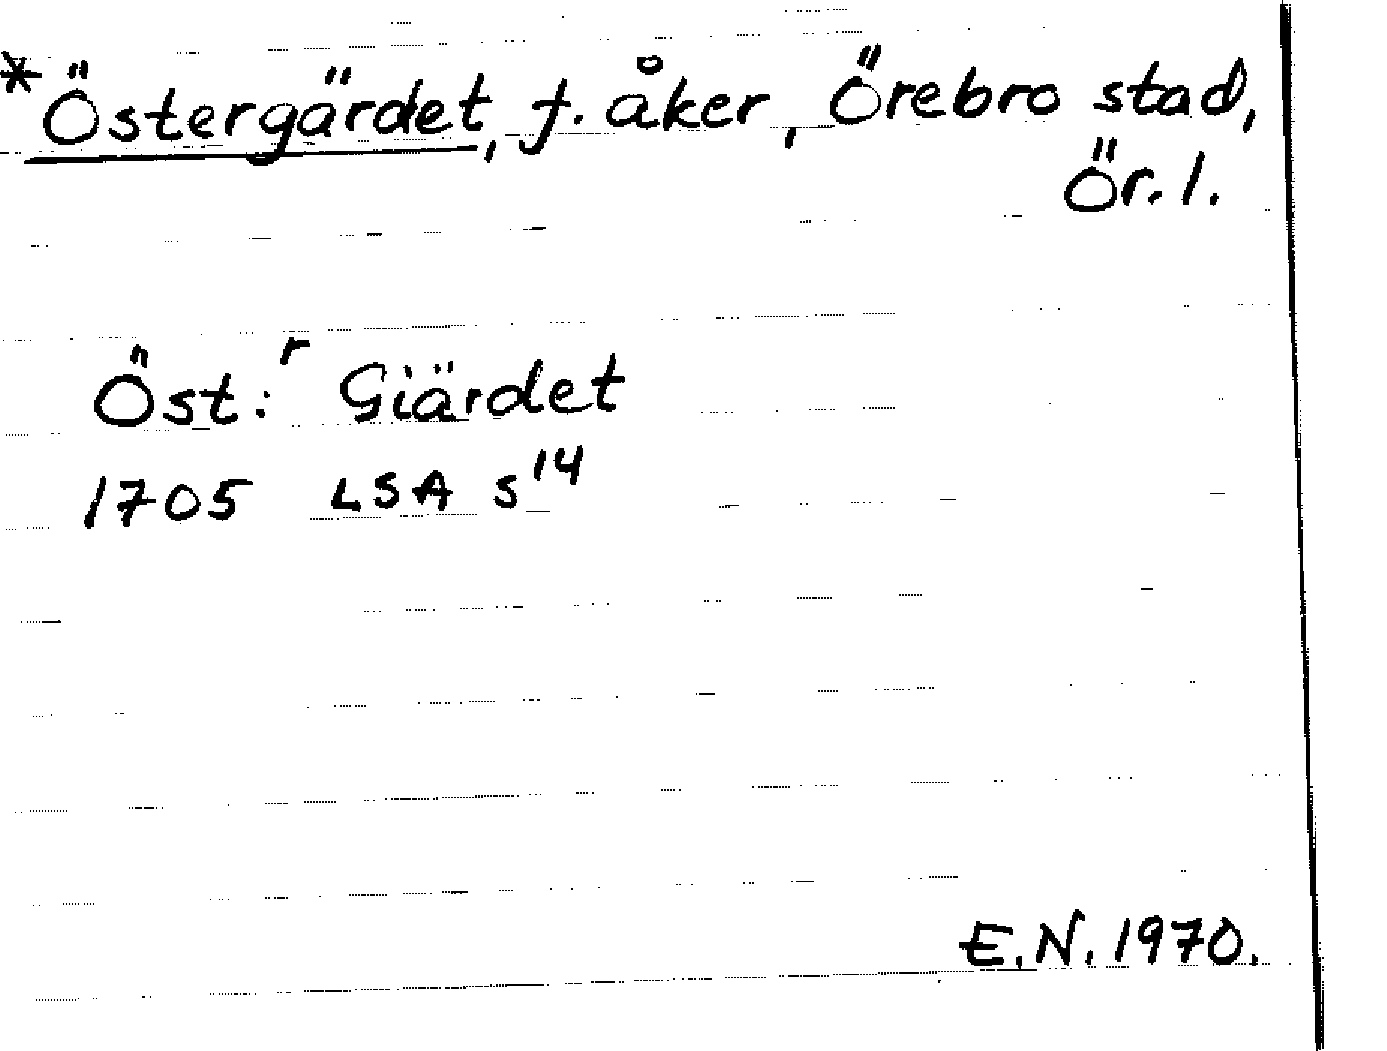 *Östergärdet, f. åker, Örebro stad,
Ör. l.
Öst:r Giärdet
1705 LSA S14
E.N. 1970.